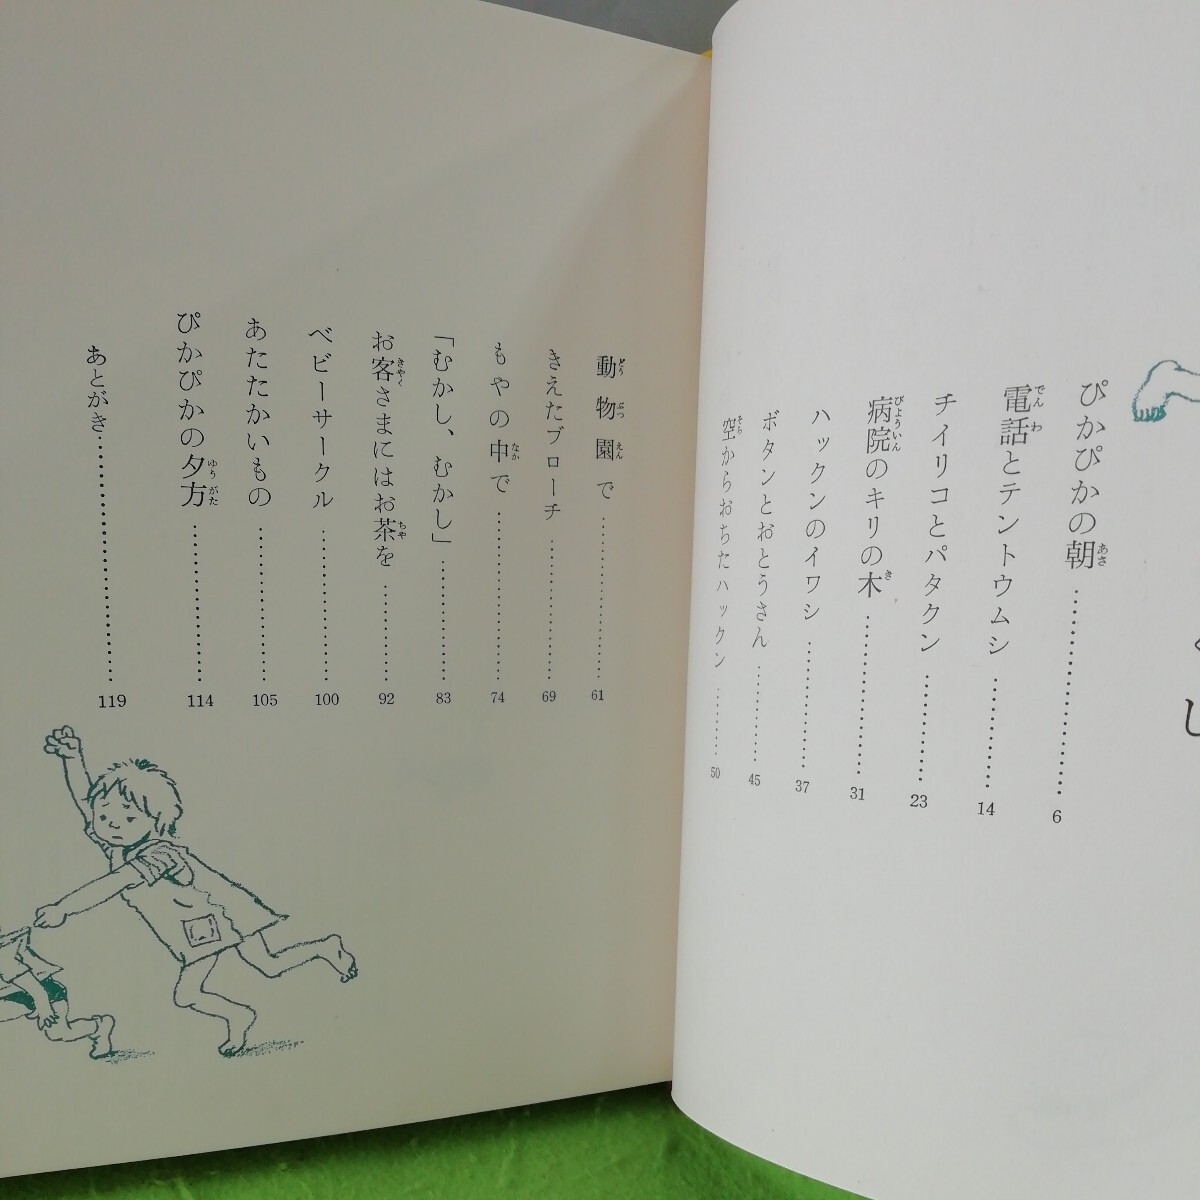 ぴかぴかの朝……………6
電話とテントウムシ……………14
チイリコとパタクン……………23
病院のキリの木……………31
ハックンのイワシ……………37
ボタンとおとうさん……………45
空からおちたハックン……………50
動物園で……………61
きえたブローチ……………69
もやの中で……………74
「むかし、むかし」……………83
お客さまにはお茶を……………92
ベビーサークル……………100
あたたかいもの……………105
ぴかぴかの夕方……………114
あとがき……………119